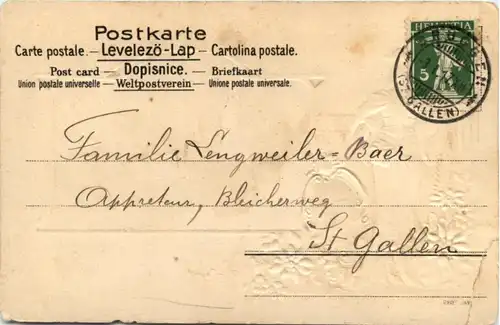 Postkarte
Carte postale. — Levelezö-Lap — Cartolina postale.
Post card — Dopisnice. — Briefkaart
Union postale universelle — Weltpostverein — Unione postale universale.
HELVETIA
5
(ST. GALLEN)
Familie Lengweiler-Baer
Appreteur, Bleicherweg
St Gallen